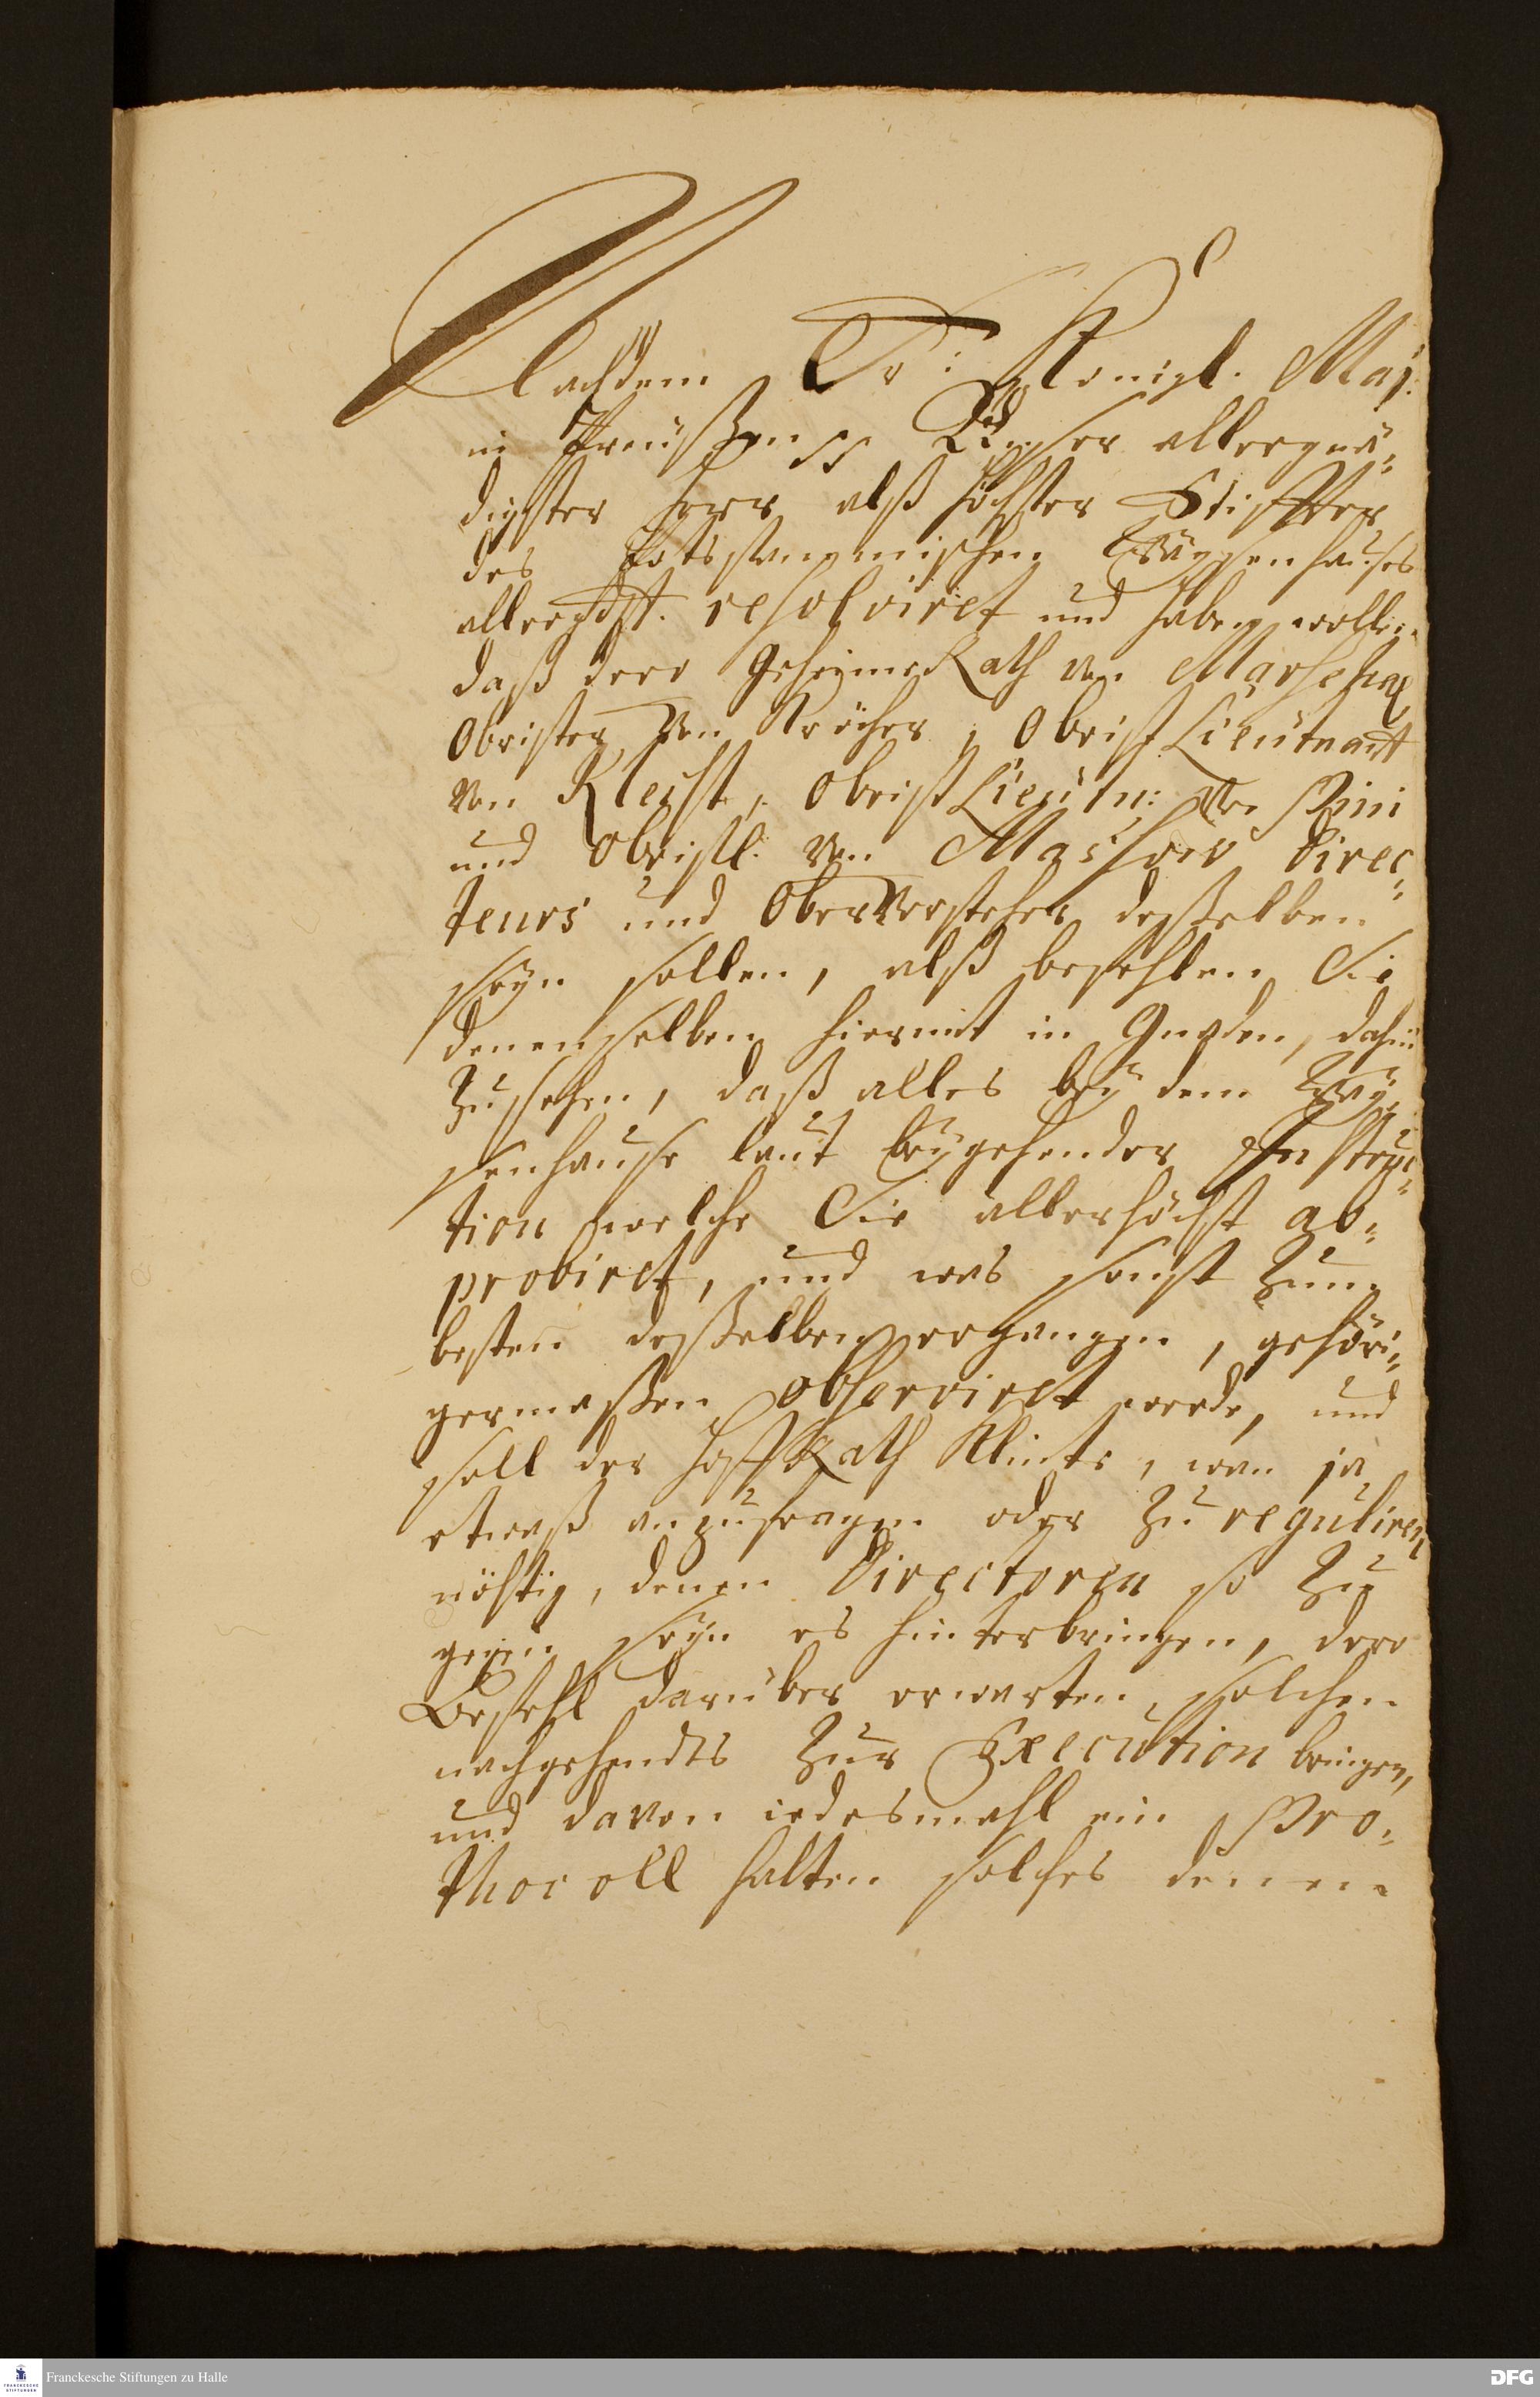 Nachdem Sr: Königl. Maj:
in Preußen pp Unser allergnä-
digster Herr alß höchster Stiffter
des Potsdammischen Wäysenhauses
allergdst. resolviret und haben wollen
daß dero Geheime Rath von Marschal,
Obrister von Kröcher, Obrist Lieutnant
von Kleist, Obrist Lieutn: von
und Obristl. von Massow Direc-
teurs und Ober Vorsteher deßelben
seyn sollen, alß befehlen Sie
denenselben hiermit in Gnaden, dahin
zu sehen, daß alles bey dem Way-
senhause laut beygehender Instruc-
tion welche Sie allerhöchst ap-
probiret, und was sonst zum
besten deßelben ergangen, gehöri-
germaßen observiret werde, und
soll der Hoff Rath Klinte, wan ja
etwaß anzufragen oder zu reguliren
nöthig, denen Directoren so zu
gegen seyn es hinterbringen, dero
Befehl darüber erwarten, solchen
nachgehendts zur Execution bringen,
und davon iedesmahl ein Pro-
thocoll halten solches denen-
Franckesche Stiftungen zu Halle
DFG